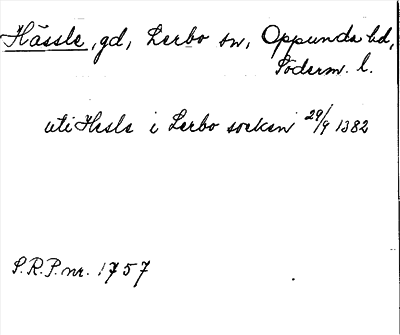 Hässle, gd, Lerbo sn, Oppunda hd,
Söderm. l.
uti Hesle i Lerbo socken 29/9 1382
S.R.P. nr. 1757